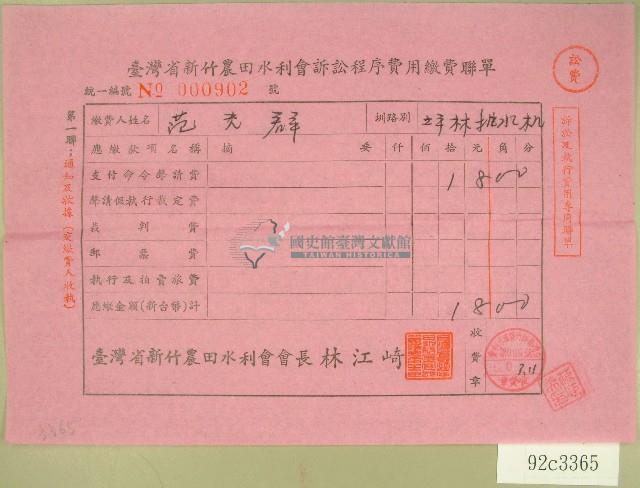 臺灣省新竹農田水利會訴訟程序費用繳費聯單
訟費
統一編號 No 000902 號
第一聯:通知及收據(交繳費人收執)
繳費人姓名 范光群 圳路別 坪林抽水机
應繳款項名稱 摘要 千 佰 拾 元 角 分
支付命令聲請費 1 8 0 0
聲請假執行裁定費
裁判費
郵票費
執行及拍賣旅費
應繳金額(新台幣)計 1 8 0 0
訴訟及執行費用專用聯單
國史館臺灣文獻館
TAIWAN HISTORICA
臺灣省新竹農田水利會會長 林江崎
收費章
3365
92c3365